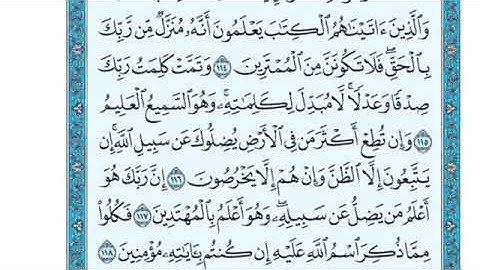 وَالَّذِينَ ءَاتَيْنَٰهُمُ الْكِتَٰبَ يَعْلَمُونَ أَنَّهُۥ مُنَزَّلٌ مِّن رَّبِّكَ
بِالْحَقِّ ۖ فَلَا تَكُونَنَّ مِنَ الْمُمْتَرِينَ ١١٤ وَتَمَّتْ كَلِمَتُ رَبِّكَ
صِدْقًا وَعَدْلًا ۚ لَّا مُبَدِّلَ لِكَلِمَٰتِهِۦ ۚ وَهُوَ السَّمِيعُ الْعَلِيمُ
١١٥ وَإِن تُطِعْ أَكْثَرَ مَن فِى الْأَرْضِ يُضِلُّوكَ عَن سَبِيلِ اللَّهِ ۚ إِن
يَتَّبِعُونَ إِلَّا الظَّنَّ وَإِنْ هُمْ إِلَّا يَخْرُصُونَ ١١٦ إِنَّ رَبَّكَ هُوَ
أَعْلَمُ مَن يَضِلُّ عَن سَبِيلِهِۦ ۖ وَهُوَ أَعْلَمُ بِالْمُهْتَدِينَ ١١٧ فَكُلُوا۟
مِمَّا ذُكِرَ اسْمُ اللَّهِ عَلَيْهِ إِن كُنتُم بِـَٔايَٰتِهِۦ مُؤْمِنِينَ ١١٨